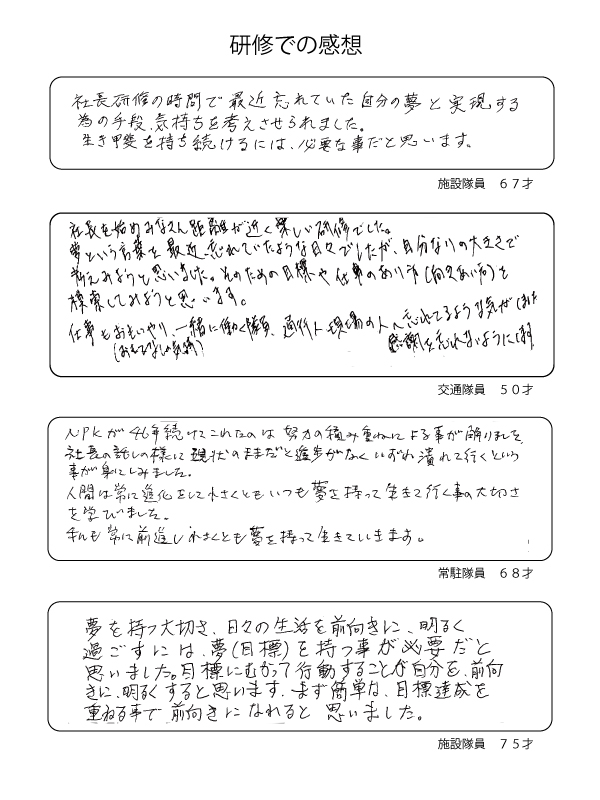 研修での感想
社長研修の時間で最近忘れていた自分の夢と実現する
為の手段、気持ちを考えさせられました。
生き甲斐を持ち続けるには、必要な事だと思います。
施設隊員 67才
社長を始めみなさん距離が近く楽しい研修でした。
夢という言葉を最近忘れていたような日々でしたが、自分なりの大きさで
考えてみようと思いました。そのための目標や仕事のあり方(向き合い方)を
模索してみようと思います。
仕事もおもいやり、一緒に働く隊員、通行人現場の人へ忘れてるような気がした
(おもてなしの気持ち) 感謝を忘れないように
交通隊員 50才
NPKが46年続けてこれたのは努力の積み重ねによる事が解りました。
社長の話しの様に現状のままだと進歩がなくいずれ潰れて行くという
事が身にしみました。
人間は常に進化をして小さくともいつも夢を持って生きて行く事の大切さ
を学びました。
私も常に前進し小さくとも夢を持って生きていきます。
常駐隊員 68才
夢を持つ大切さ、日々の生活を前向きに、明るく
過ごすには、夢(目標)を持つ事が必要だと
思いました。目標にむかって行動することが自分を、前向
きに、明るくすると思います、まず簡単な、目標達成を
重ねる事で前向きになれると思いました。
施設隊員 75才